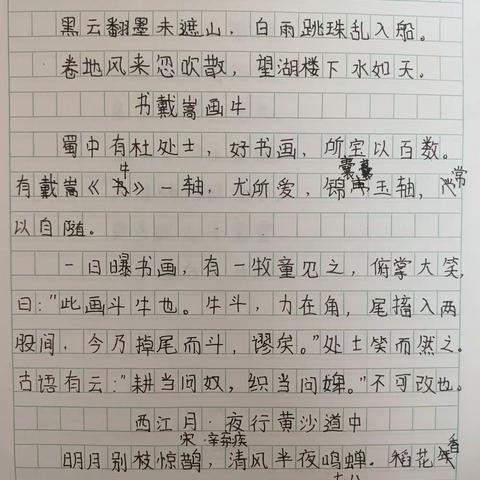 黑云翻墨未遮山，白雨跳珠乱入船。
卷地风来忽吹散，望湖楼下水如天。
书戴嵩画牛
蜀中有杜处士，好书画，所宝以百数。
有戴嵩《牛》一轴，尤所爱，锦囊玉轴，常
以自随。
一日曝书画，有一牧童见之，俯掌大笑，
曰："此画斗牛也。牛斗，力在角，尾搐入两
股间，今乃掉尾而斗，谬矣。"处士笑而然之。
古语有云："耕当问奴，织当问婢。"不可改也。
西江月·夜行黄沙道中
宋·辛弃疾
明月别枝惊鹊，清风半夜鸣蝉。稻花香